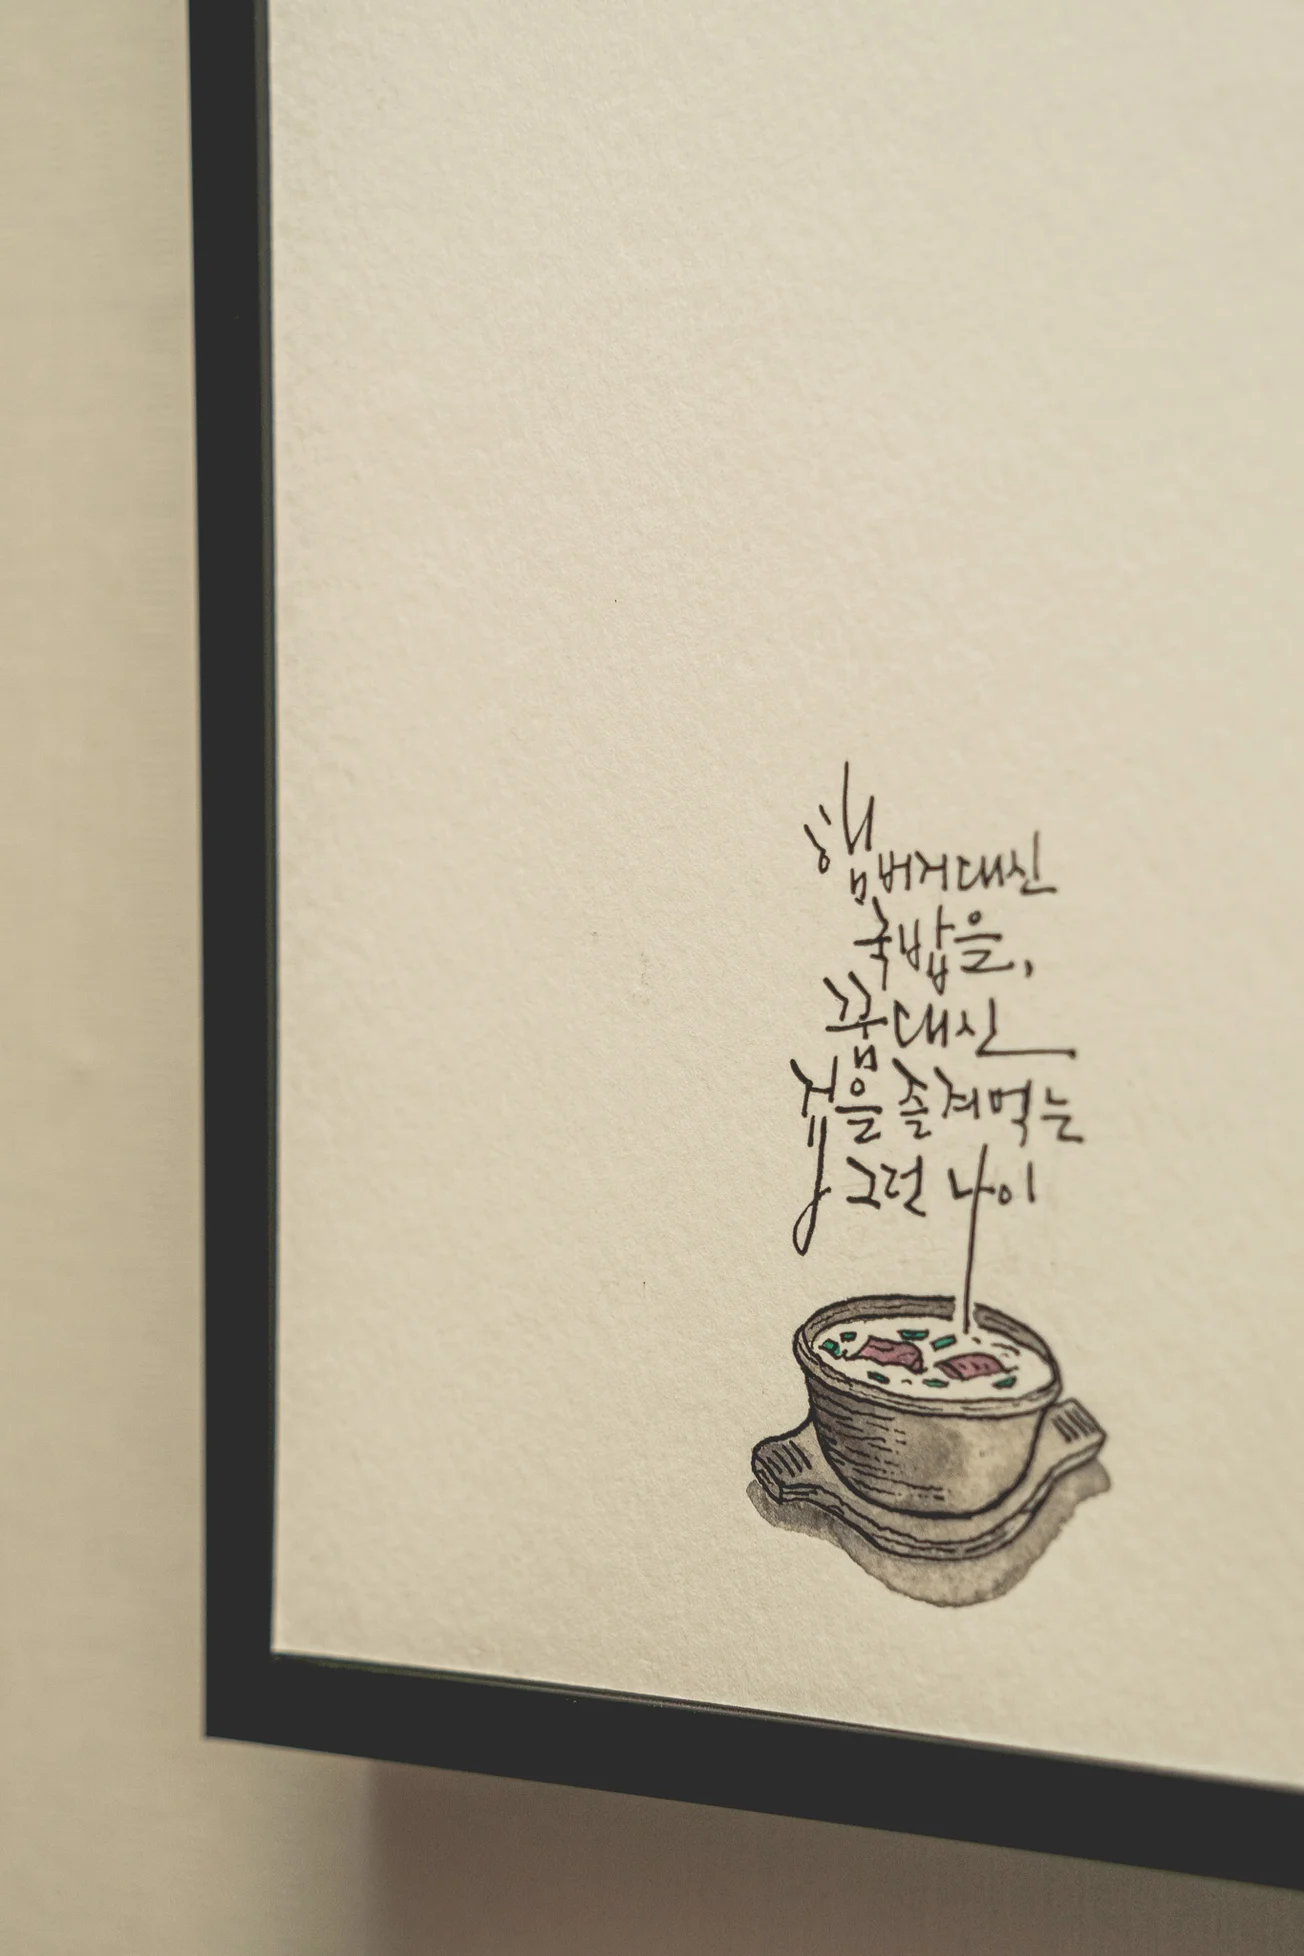 햄버거대신
국밥을,
꿈대신
겁을 즐겨먹는
그런 나이